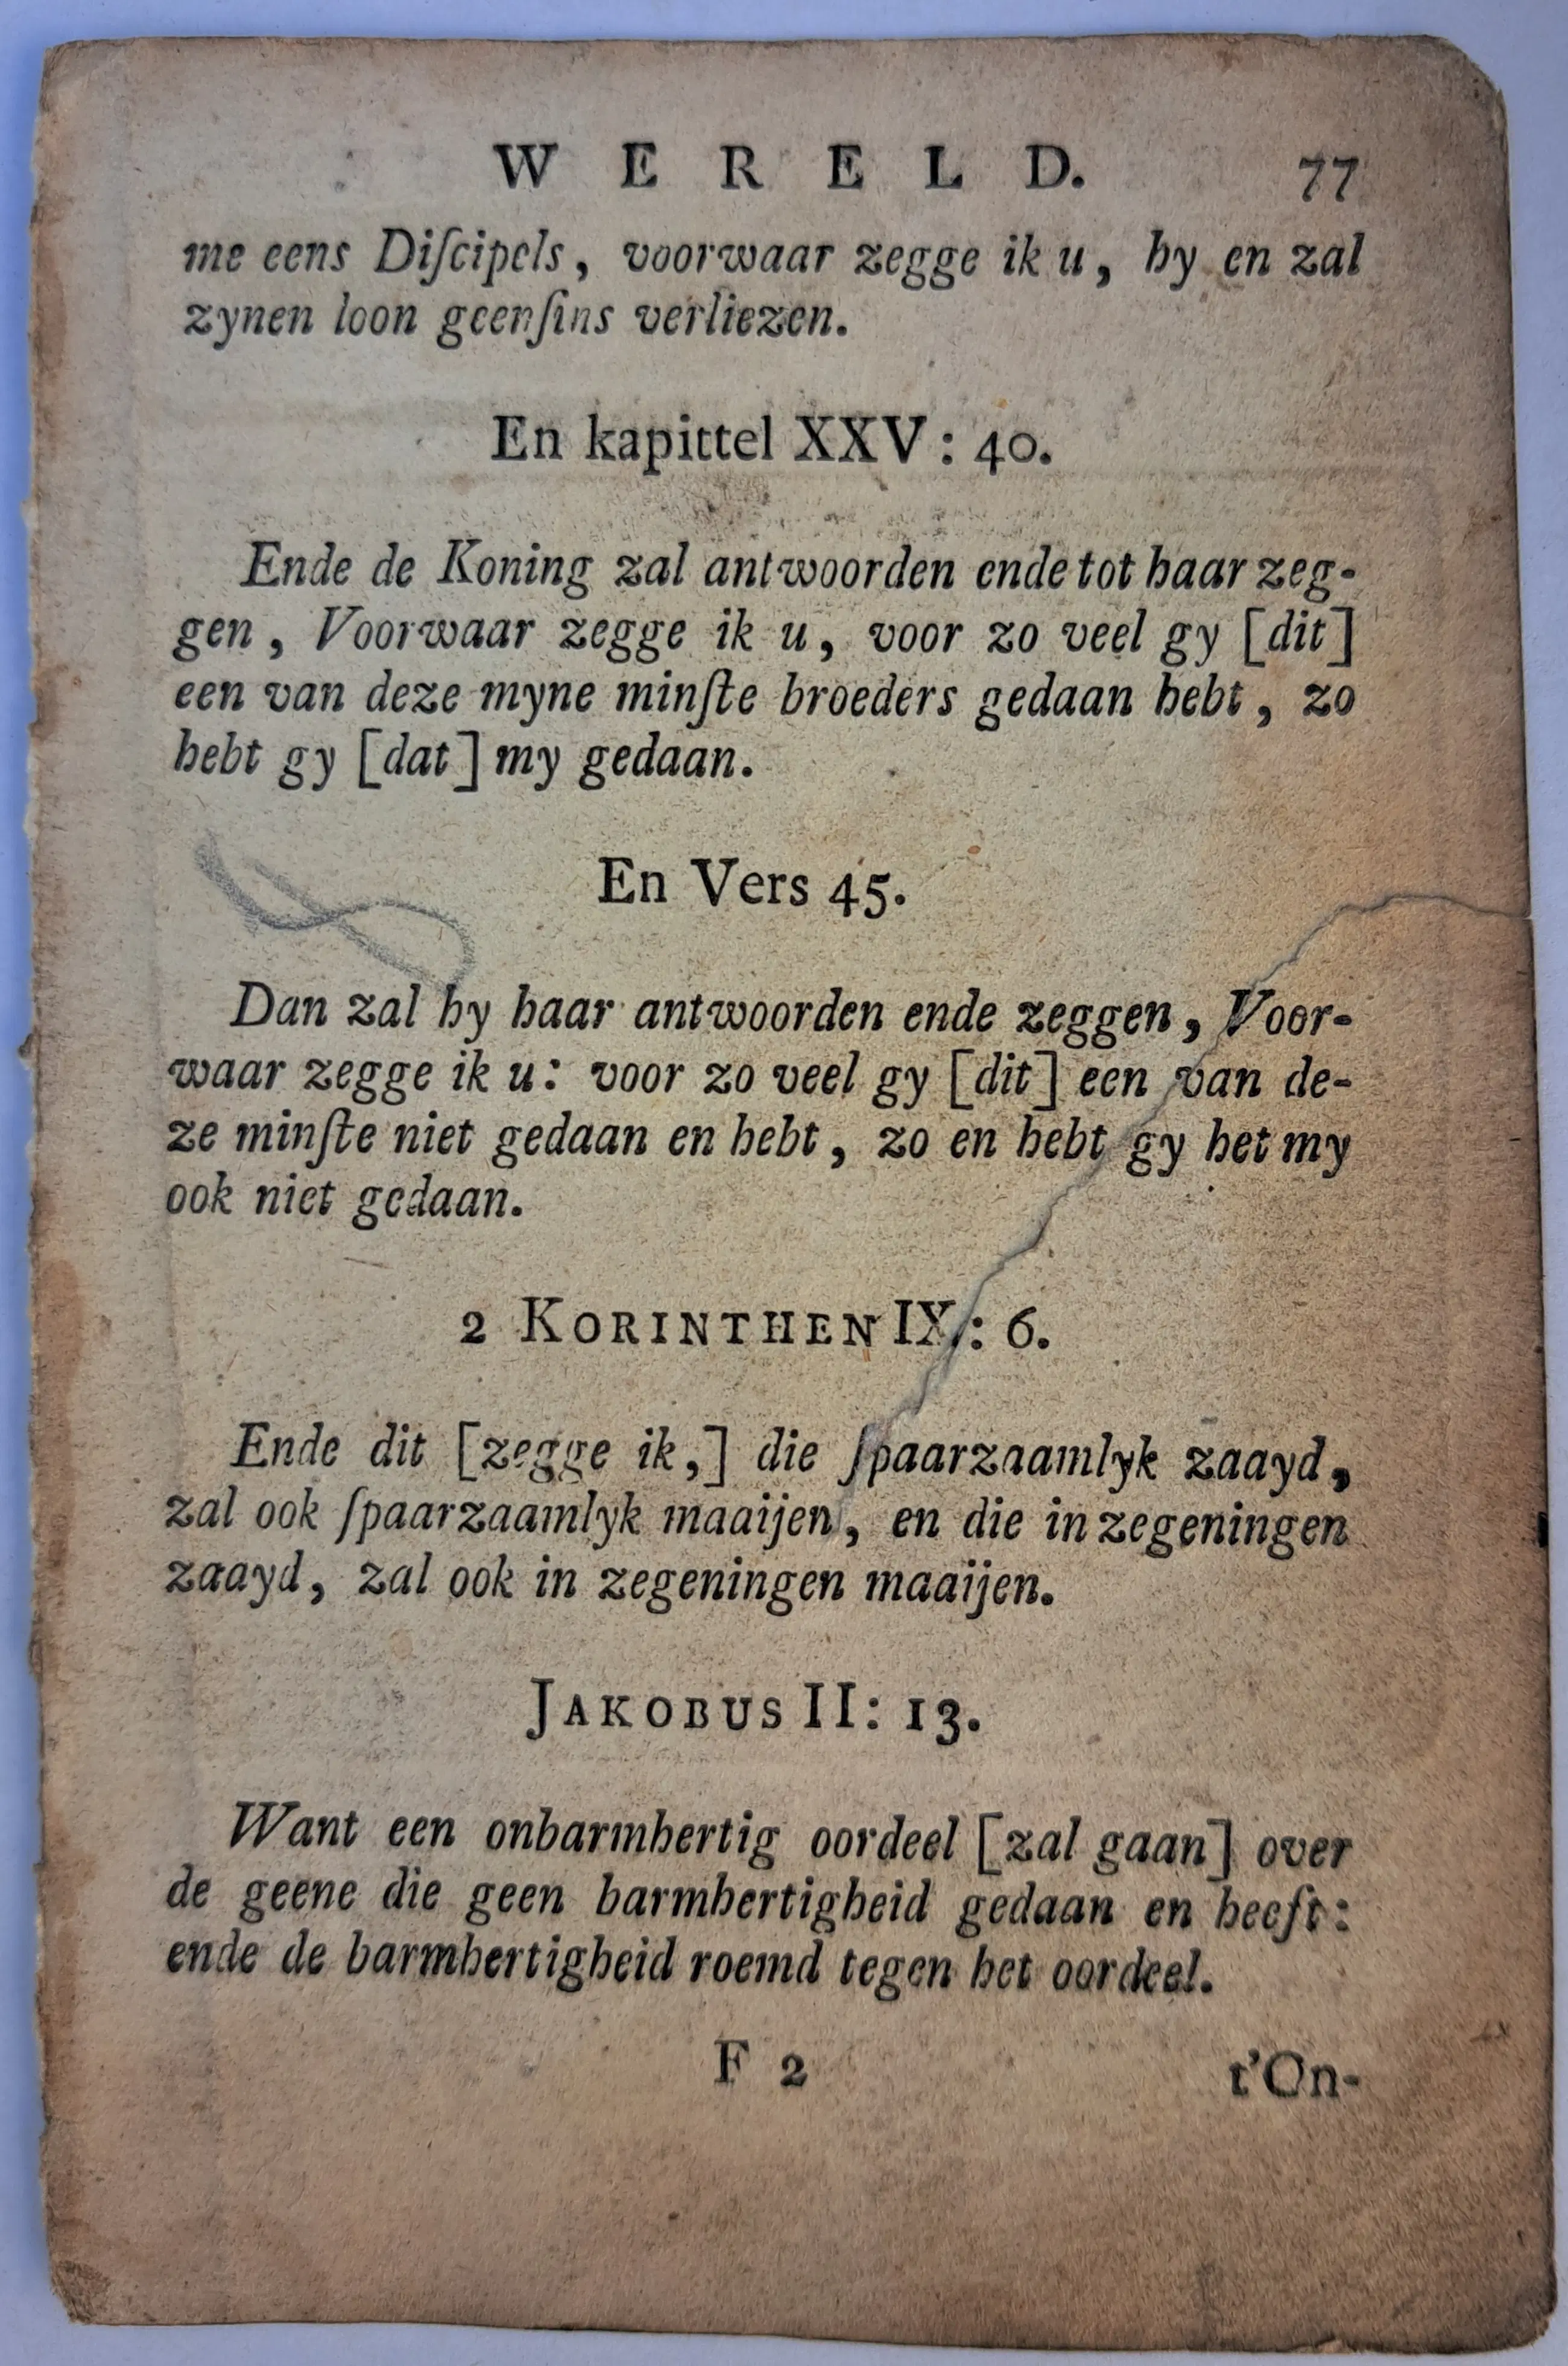 W E R E L D. 77
me eens Diſcipels, voorwaar zegge ik u, hy en zal
zynen loon geenſins verliezen.
En kapittel XXV: 40.
Ende de Koning zal antwoorden ende tot haar zeg-
gen, Voorwaar zegge ik u, voor zo veel gy [dit]
een van deze myne minſte broeders gedaan hebt, zo
hebt gy [dat] my gedaan.
En Vers 45.
Dan zal hy haar antwoorden ende zeggen, Voor-
waar zegge ik u: voor zo veel gy [dit] een van de-
ze minſte niet gedaan en hebt, zo en hebt gy het my
ook niet gedaan.
2 KORINTHEN IX: 6.
Ende dit [zegge ik,] die ſpaarzaamlyk zaayd,
zal ook ſpaarzaamlyk maaijen, en die in zegeningen
zaayd, zal ook in zegeningen maaijen.
JAKOBUS II: 13.
Want een onbarmhertig oordeel [zal gaan] over
de geene die geen barmhertigheid gedaan en heeft:
ende de barmhertigheid roemd tegen het oordeel.
F 2 t'On-